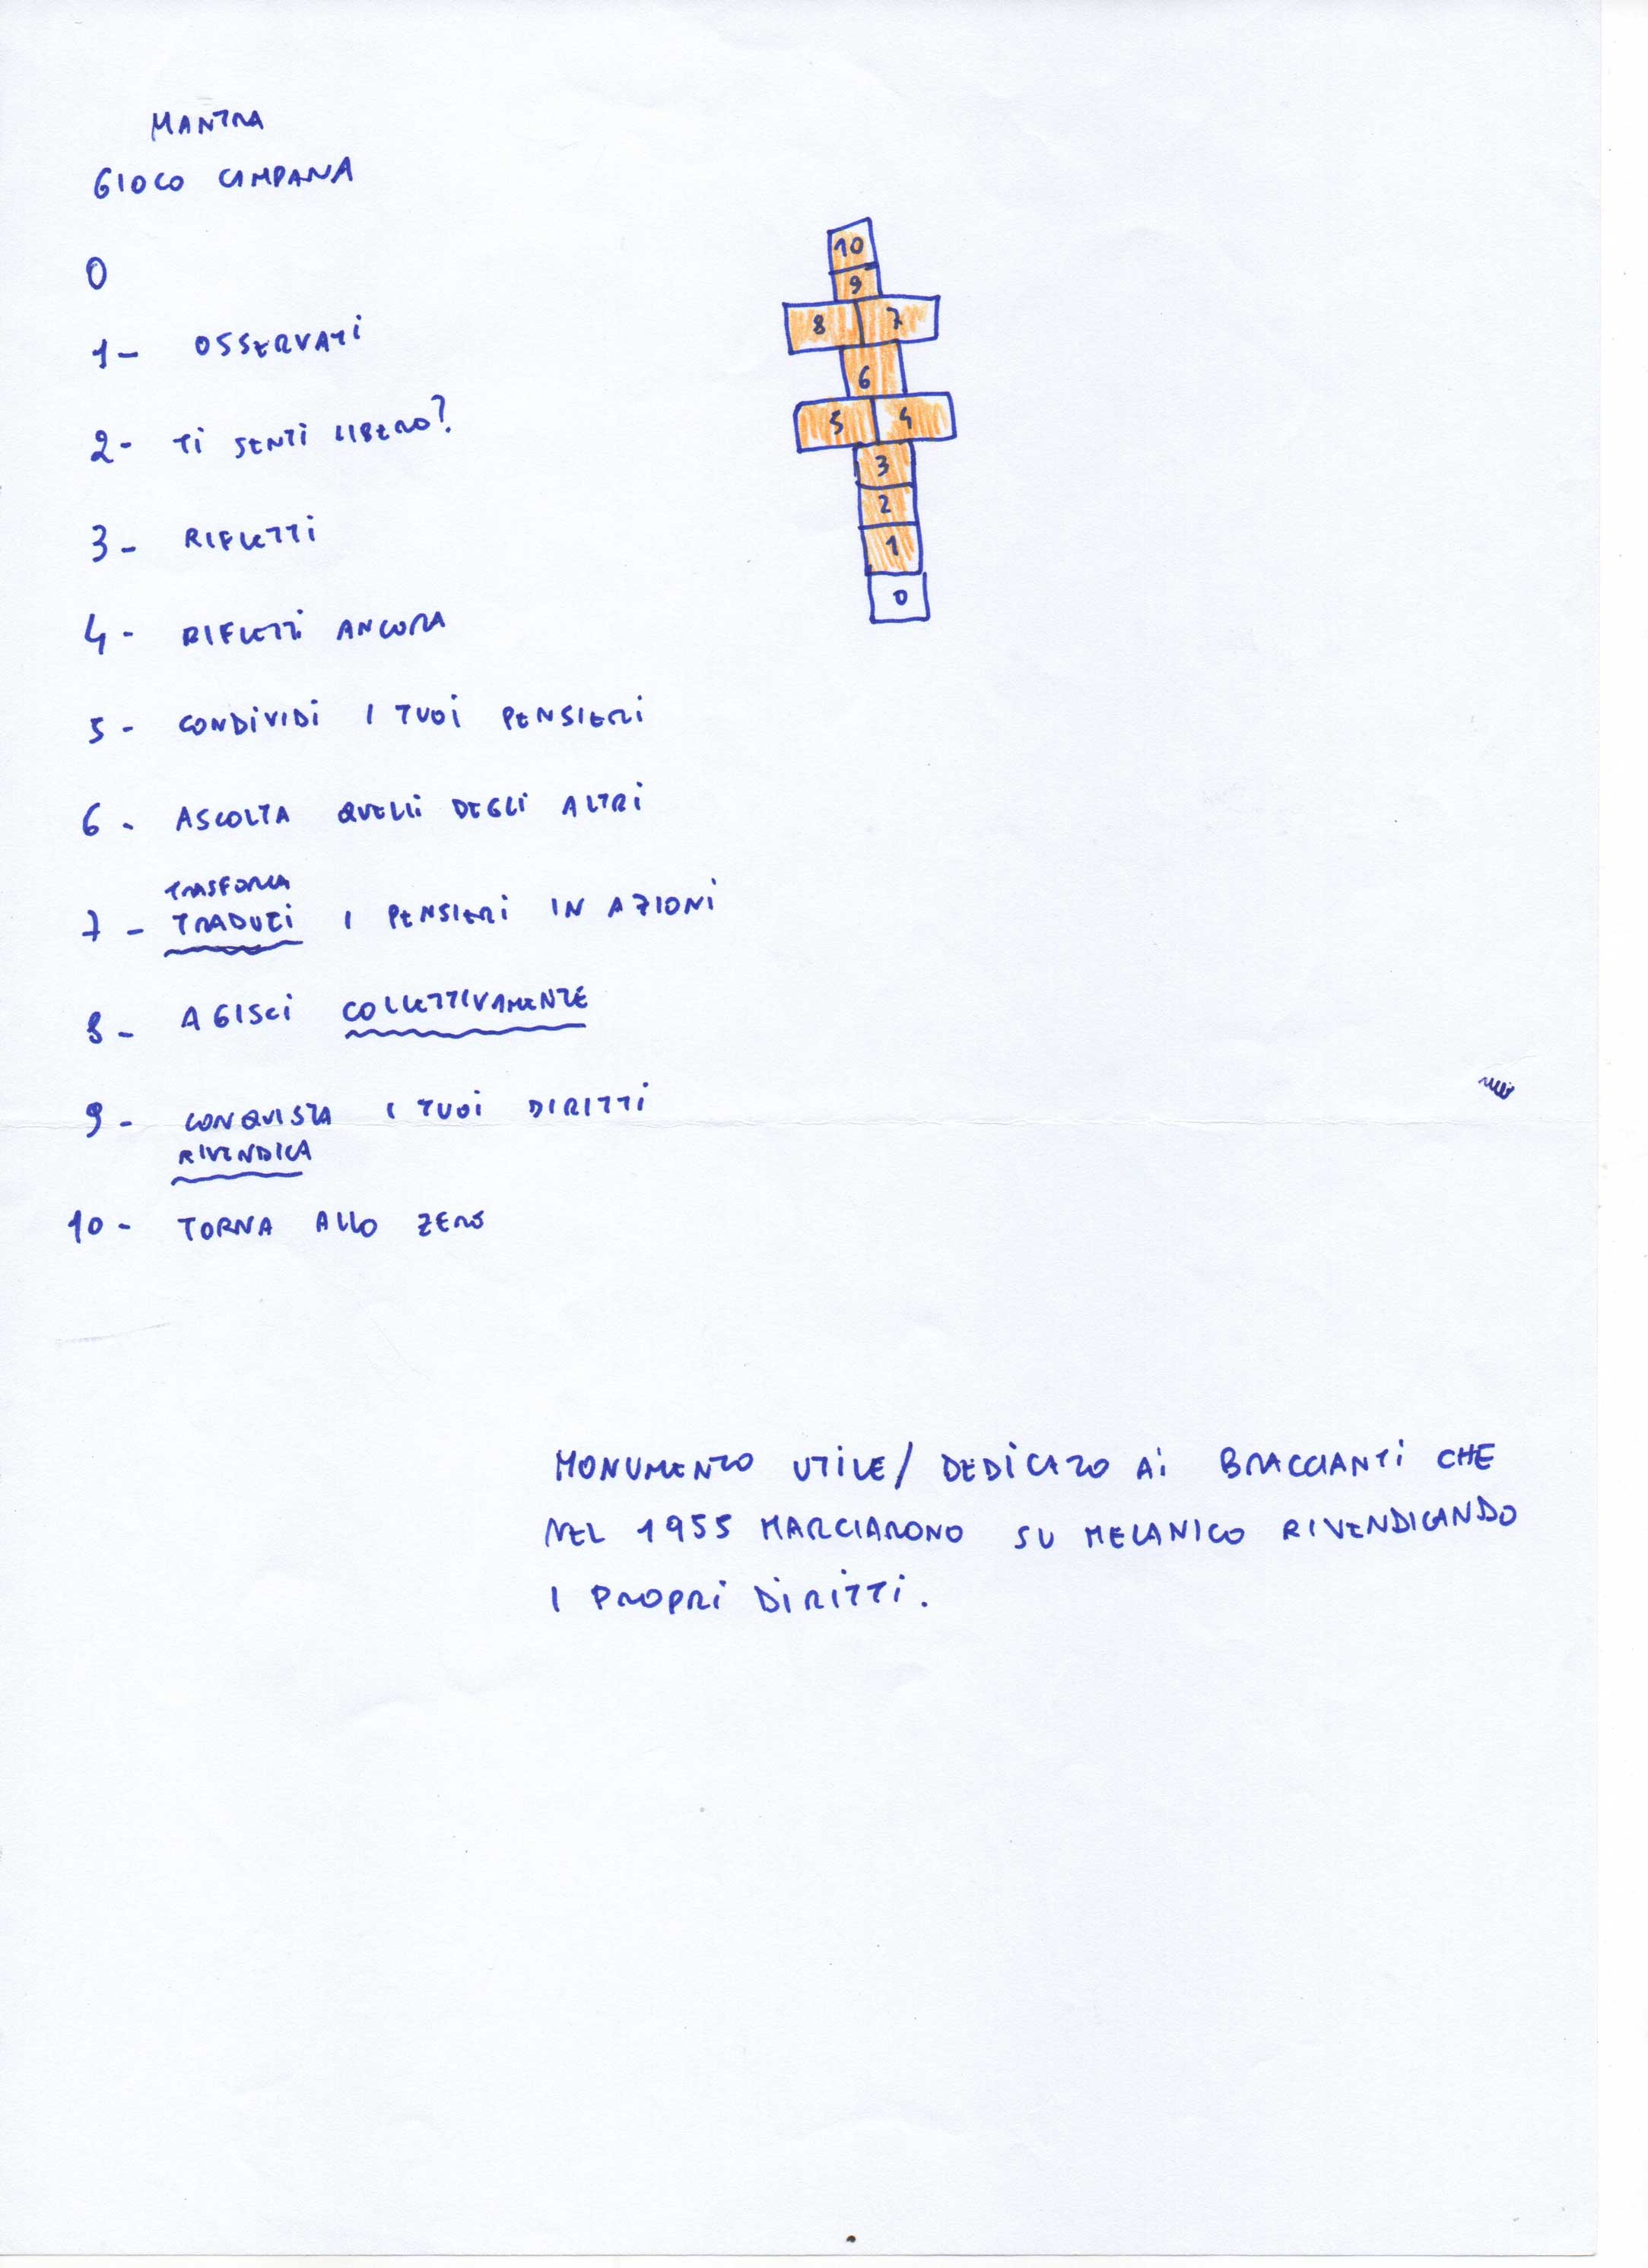 MANTRA
GIOCO CAMPANA
0
1- OSSERVATI
2- TI SENTI LIBERO?
3- RIFLETTI
4- RIFLETTI ANCORA
5- CONDIVIDI I TUOI PENSIERI
6- ASCOLTA QUELLI DEGLI ALTRI
TRASFORMA
7- TRADUCI I PENSIERI IN AZIONI
8- AGISCI COLLETTIVAMENTE
9- CONQUISTA I TUOI DIRITTI
RIVENDICA
10- TORNA ALLO ZERO
10
9
8 7
6
5 4
3
2
1
0
MONUMENTO UTILE/ DEDICATO AI BRACCIANTI CHE
NEL 1955 MARCIARONO SU MELANICO RIVENDICANDO
I PROPRI DIRITTI.